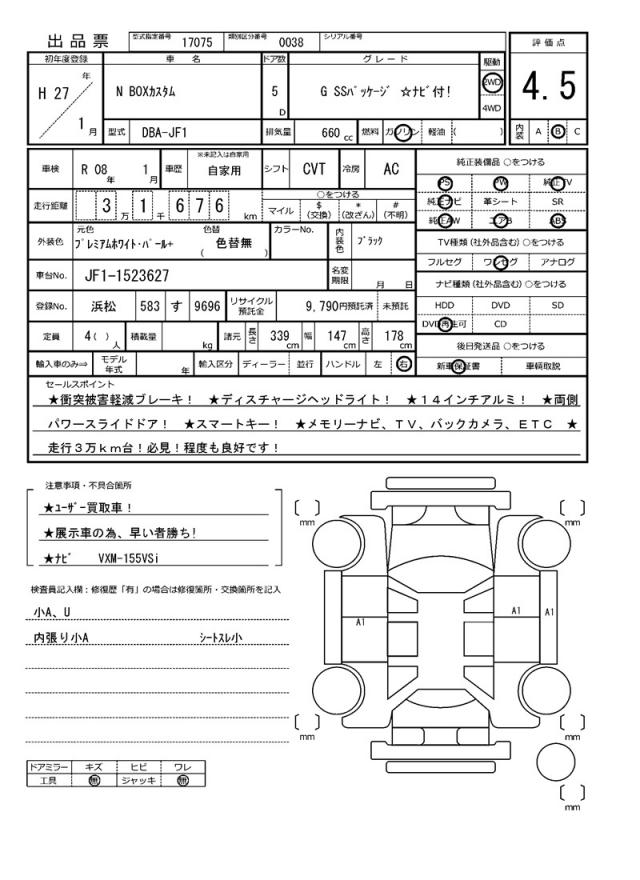 出品票 型式指定番号 17075 類別区分番号 0038 シリアル番号
評価点
4.5
内装 A B C
初年度登録 車名 ドア数 グレード 駆動
H 27 年 1 月
N BOXカスタム 5 D G SSパッケージ ☆ナビ付! 2WD 4WD
型式 DBA-JF1 排気量 660 cc 燃料 ガソリン 軽油 ( )
車検 R 08 年 1 月 車歴 ※未記入は自家用 自家用 シフト CVT 冷房 AC
走行距離 3 万 1 千 6 7 6 km
○をつける
マイル $ (交換) * (改ざん) # (不明)
外装色 元色 プレミアムホワイト・パール+ 色替 ( 色替無 ) カラーNo. 内装色 ブラック
車台No. JF1-1523627 名変期限 月 日
登録No. 浜松 583 す 9696 リサイクル預託金 9,790円預託済 未預託
定員 4( ) 人 積載量 kg 諸元 長さ 339 cm 幅 147 cm 高さ 178 cm
輸入車のみ⇒ モデル年式 年 輸入区分 ディーラー 並行 ハンドル 左 右
純正装備品 ○をつける
PS PW 純正TV
純正ナビ 革シート SR
純正AW エアB ABS
TV種類 (社外品含む) ○をつける
フルセグ ワンセグ アナログ
ナビ種類 (社外品含む) ○をつける
HDD DVD SD
DVD再生可 CD
後日発送品 ○をつける
新車保証書 車輌取説
セールスポイント
★衝突被害軽減ブレーキ! ★ディスチャージヘッドライト! ★14インチアルミ! ★両側
パワースライドドア! ★スマートキー! ★メモリーナビ、TV、バックカメラ、ETC ★
走行3万km台!必見!程度も良好です!
注意事項・不具合箇所
★ユーザー買取車!
★展示車の為、早い者勝ち!
★ナビ VXM-155VSi
検査員記入欄:修復歴「有」の場合は修復箇所・交換箇所を記入
小A、U
内張り小A シートスレ小
ドアミラー キズ ヒビ ワレ
工具 無 ジャッキ 無
mm
mm
A1
A1
A1
mm
mm
mm